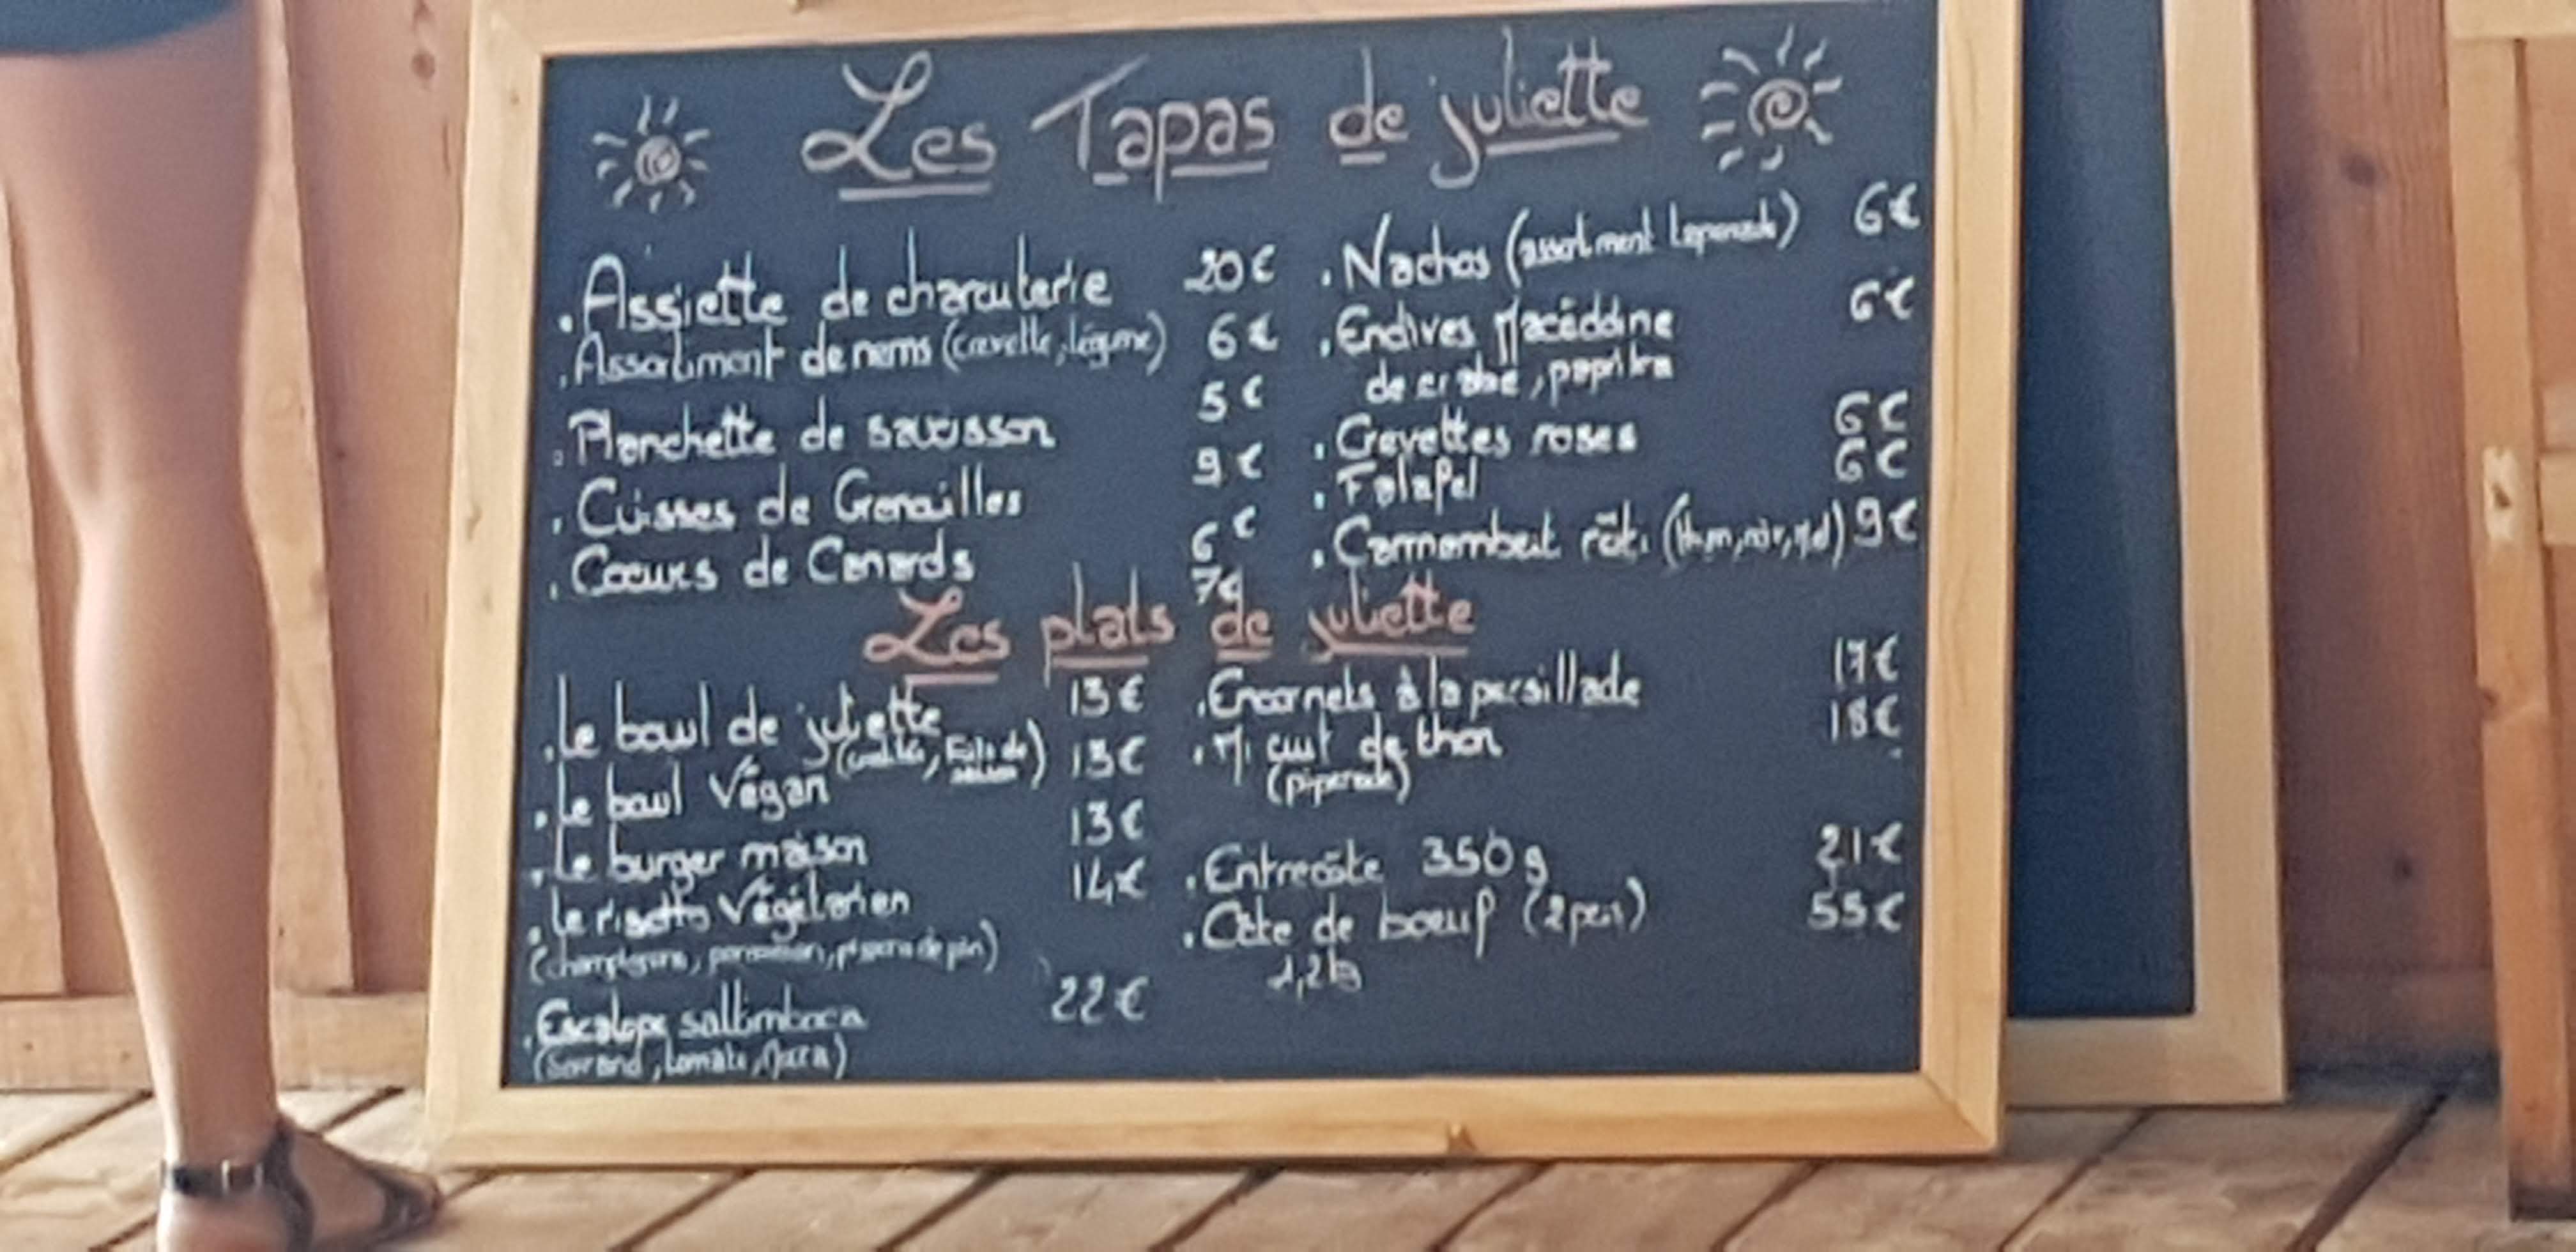 Les Tapas de juliette
. Assiette de charcuterie 20€
. Assortiment de nems (crevette, légume) 6€
5€
. Planchette de saucisson
9€
. Cuisses de Grenailles
6€
. Coeurs de Canards
7€
. Nachos (assortiment tapenade) 6€
. Endives Macédoine 6€
de crabe, paprika
. Crevettes roses 6€
. Falafel 6€
. Camembert rôti (thym, miel) 9€
Les plats de juliette
. Le bowl de juliette 13€
13€
. Le bowl Végan
13€
. Le burger maison
14€
. Le risotto Végétarien
(champignons, parmesan, pignons de pin)
22€
. Escalope saltimboca
(Serrano, tomate,
. Encornets à la persillade 17€
. Mi cuit de thon 18€
(piperade)
. Entrecôte 350g 21€
. Côte de boeuf (2 pers) 55€
1,2kg